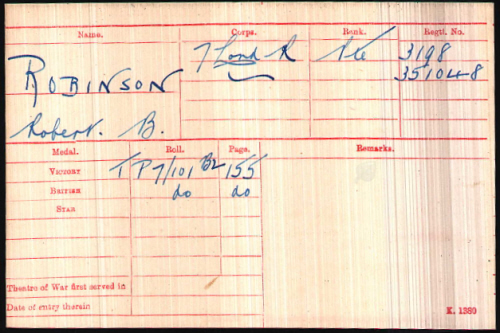 Name. Corps. Rank. Regtl. No.
ROBINSON 7 Lond R Pte 3198
351048
Robert. B.
Medal. Roll. Page. Remarks.
Victory TP7/101 B2 155
British do do
Star
Theatre of War first served in
Date of entry therein
K. 1380